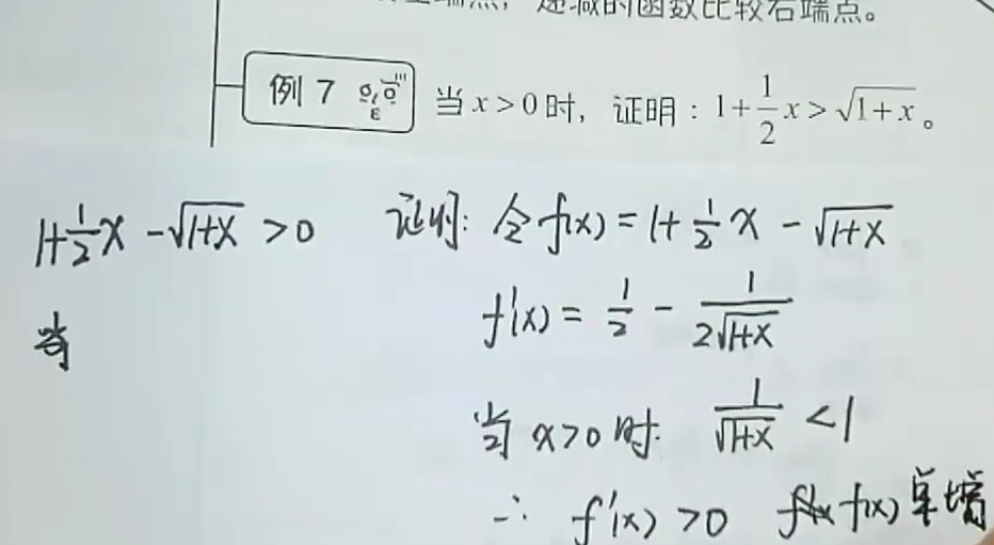 递减的函数比较右端点。
例 7 当 x > 0 时，证明：1+\frac{1}{2}x > \sqrt{1+x}。
1+\frac{1}{2}x - \sqrt{1+x} > 0 证明: 令 f(x) = 1+\frac{1}{2}x - \sqrt{1+x}
f'(x) = \frac{1}{2} - \frac{1}{2\sqrt{1+x}}
当 x>0 时: \frac{1}{\sqrt{1+x}} < 1
∴ f'(x) > 0 f(x) 单增